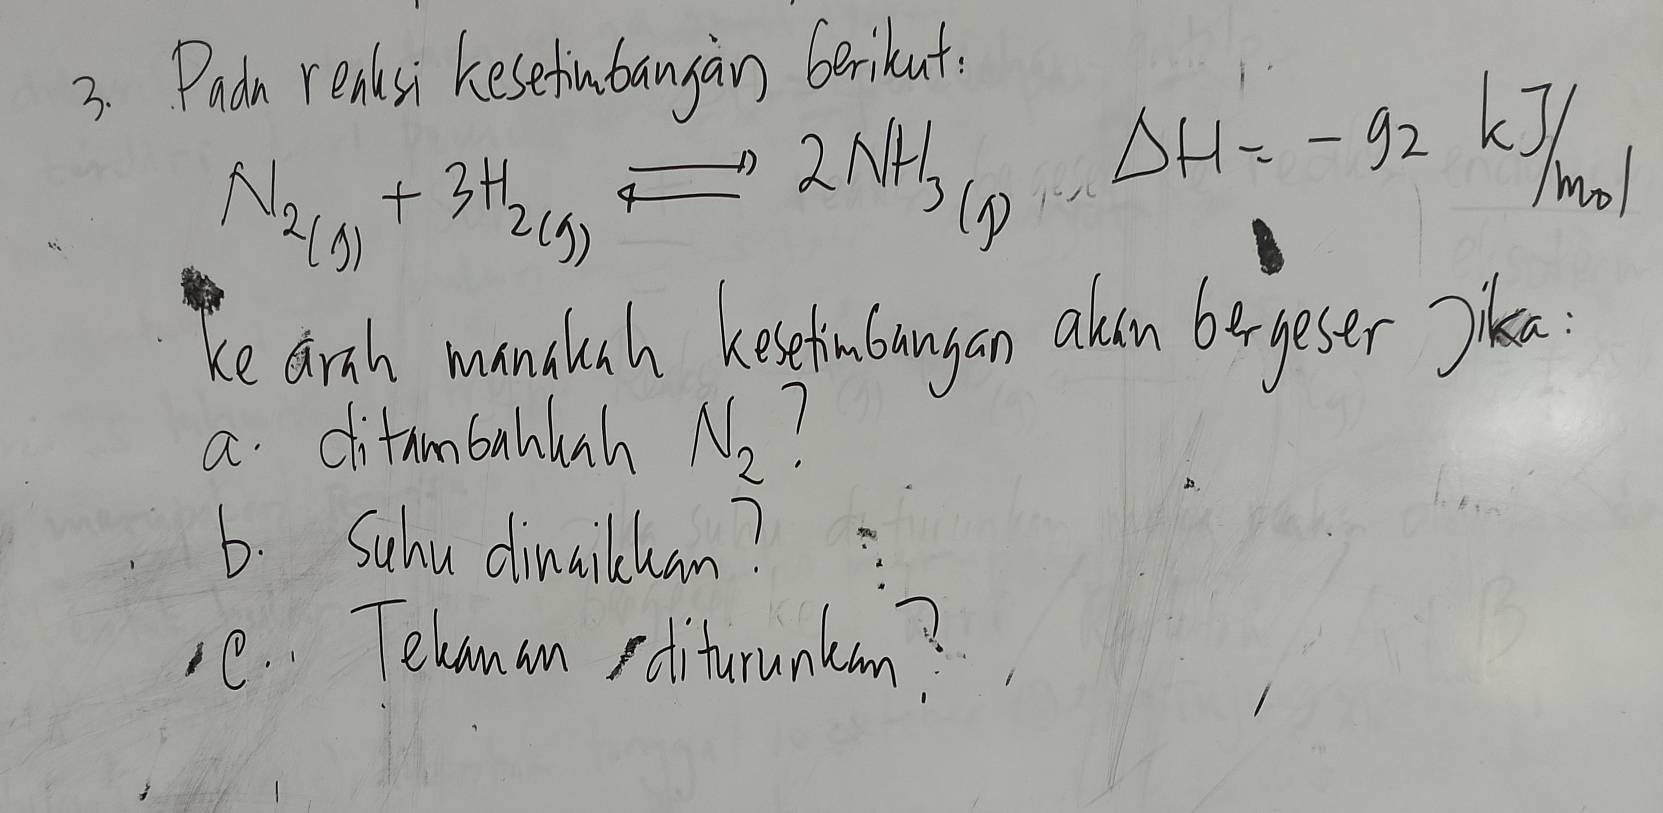 3. Pada reaksi kesetimbangan berikut:
N2(g) + 3H2(g) ⇌ 2NH3(g) ΔH = -92 kJ/mol
ke arah manakah kesetimbangan akan bergeser jika:
a. ditambahkah N2?
b. Suhu dinaikkan?
c. Tekanan diturunkan?